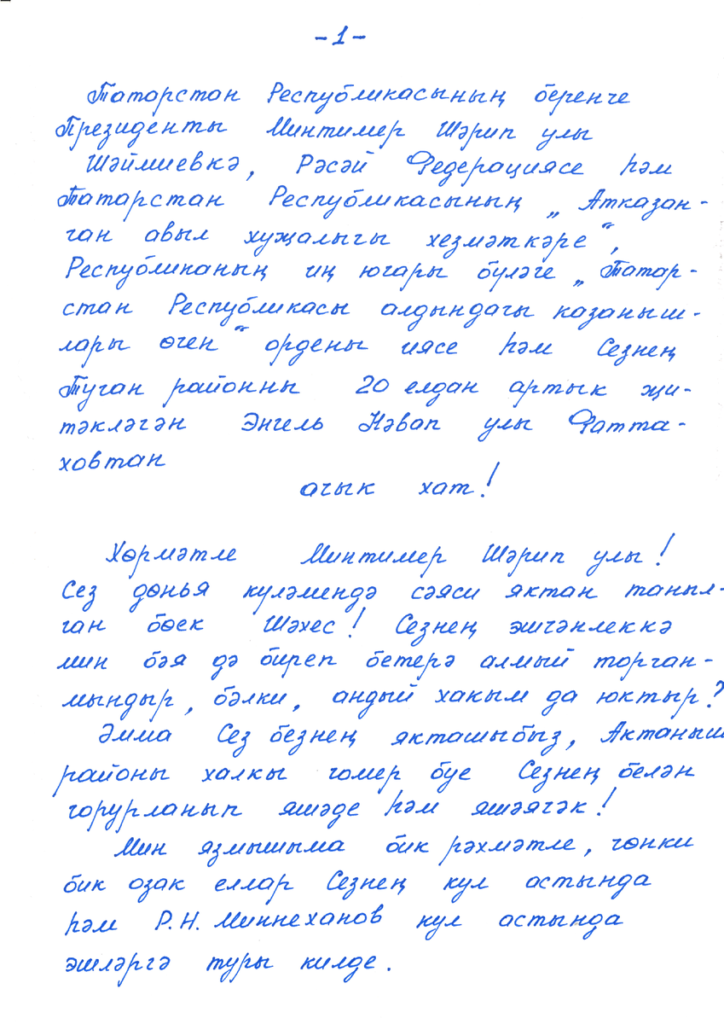 -1-
Татарстан Республикасының беренче
Президенты Минтимер Шәрип улы
Шәймиевкә, Рәсәй Федерациясе һәм
Татарстан Республикасының „Атказан-
ган авыл хуҗалыгы хезмәткәре“,
Республиканың иң югары бүләге „Татар-
стан Республикасы алдындагы казаныш-
лары өчен“ ордены иясе һәм Сезнең
Туган районны 20 елдан артык җи-
тәкләгән Энгель Нәвап улы Фатта-
ховтан
ачык хат!
Хөрмәтле Минтимер Шәрип улы!
Сез дөнья күләмендә сәяси яктан таныл-
ган бөек Шәхес! Сезнең эшчәнлеккә
мин бәя дә биреп бетерә алмый торган-
мындыр, бәлки, андый хакым да юктыр?
Әмма Сез безнең якташыбыз, Актаныш
районы халкы гомер буе Сезнең белән
горурланып яшәде һәм яшәячәк!
Мин язмышыма бик рәхмәтле, чөнки
бик озак еллар Сезнең кул астында
һәм Р.Н. Миннеханов кул астында
эшләргә туры килде.